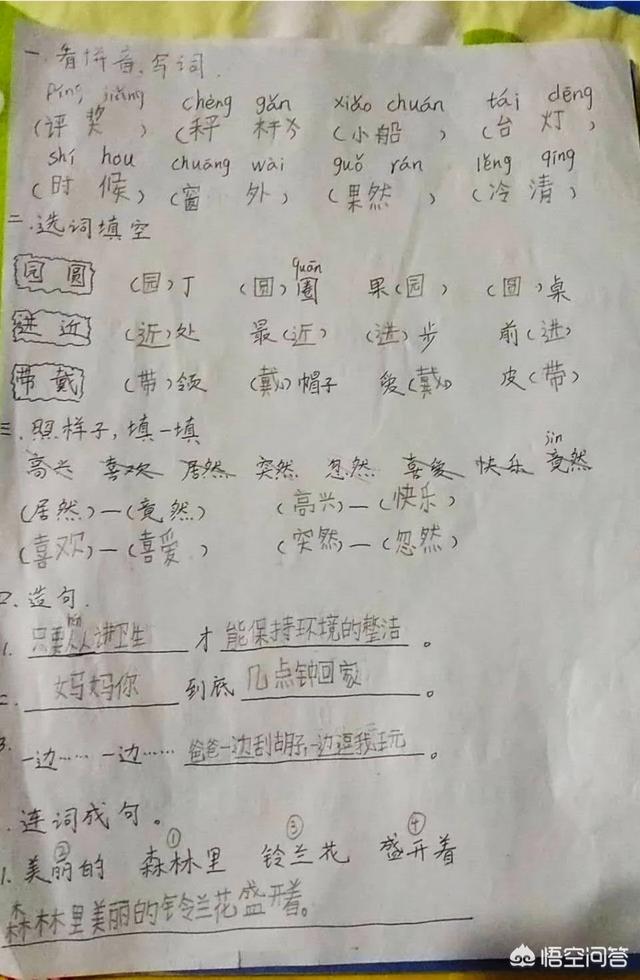 一.看拼音,写词.
píng jiǎng chèng gǎn xiǎo chuán tái dēng
(评奖) (秤杆) (小船) (台灯)
shí hou chuāng wài guǒ rán lěng qīng
(时候) (窗外) (果然) (冷清)
二.选词填空
quān
园 圆 (园)丁 (圆)圈 果(园) (圆)桌
进 近 (近)处 最(近) (进)步 前(进)
带 戴 (带)领 (戴)帽子 爱(戴) 皮(带)
三.照样子,填一填
jìn
高兴 喜欢 居然 突然 忽然 喜爱 快乐 竟然
(居然)—(竟然) (高兴)—(快乐)
(喜欢)—(喜爱) (突然)—(忽然)
四.造句.
1. 只要人人讲卫生 才 能保持环境的整洁。
2. 妈妈你 到底 几点钟回家。
3. 一边…… 一边…… 爸爸一边刮胡子,一边逗我玩。
.连词成句。
② ① ③ ④
1. 美丽的 森林里 铃兰花 盛开着
森林里美丽的铃兰花盛开着。
悟空问答